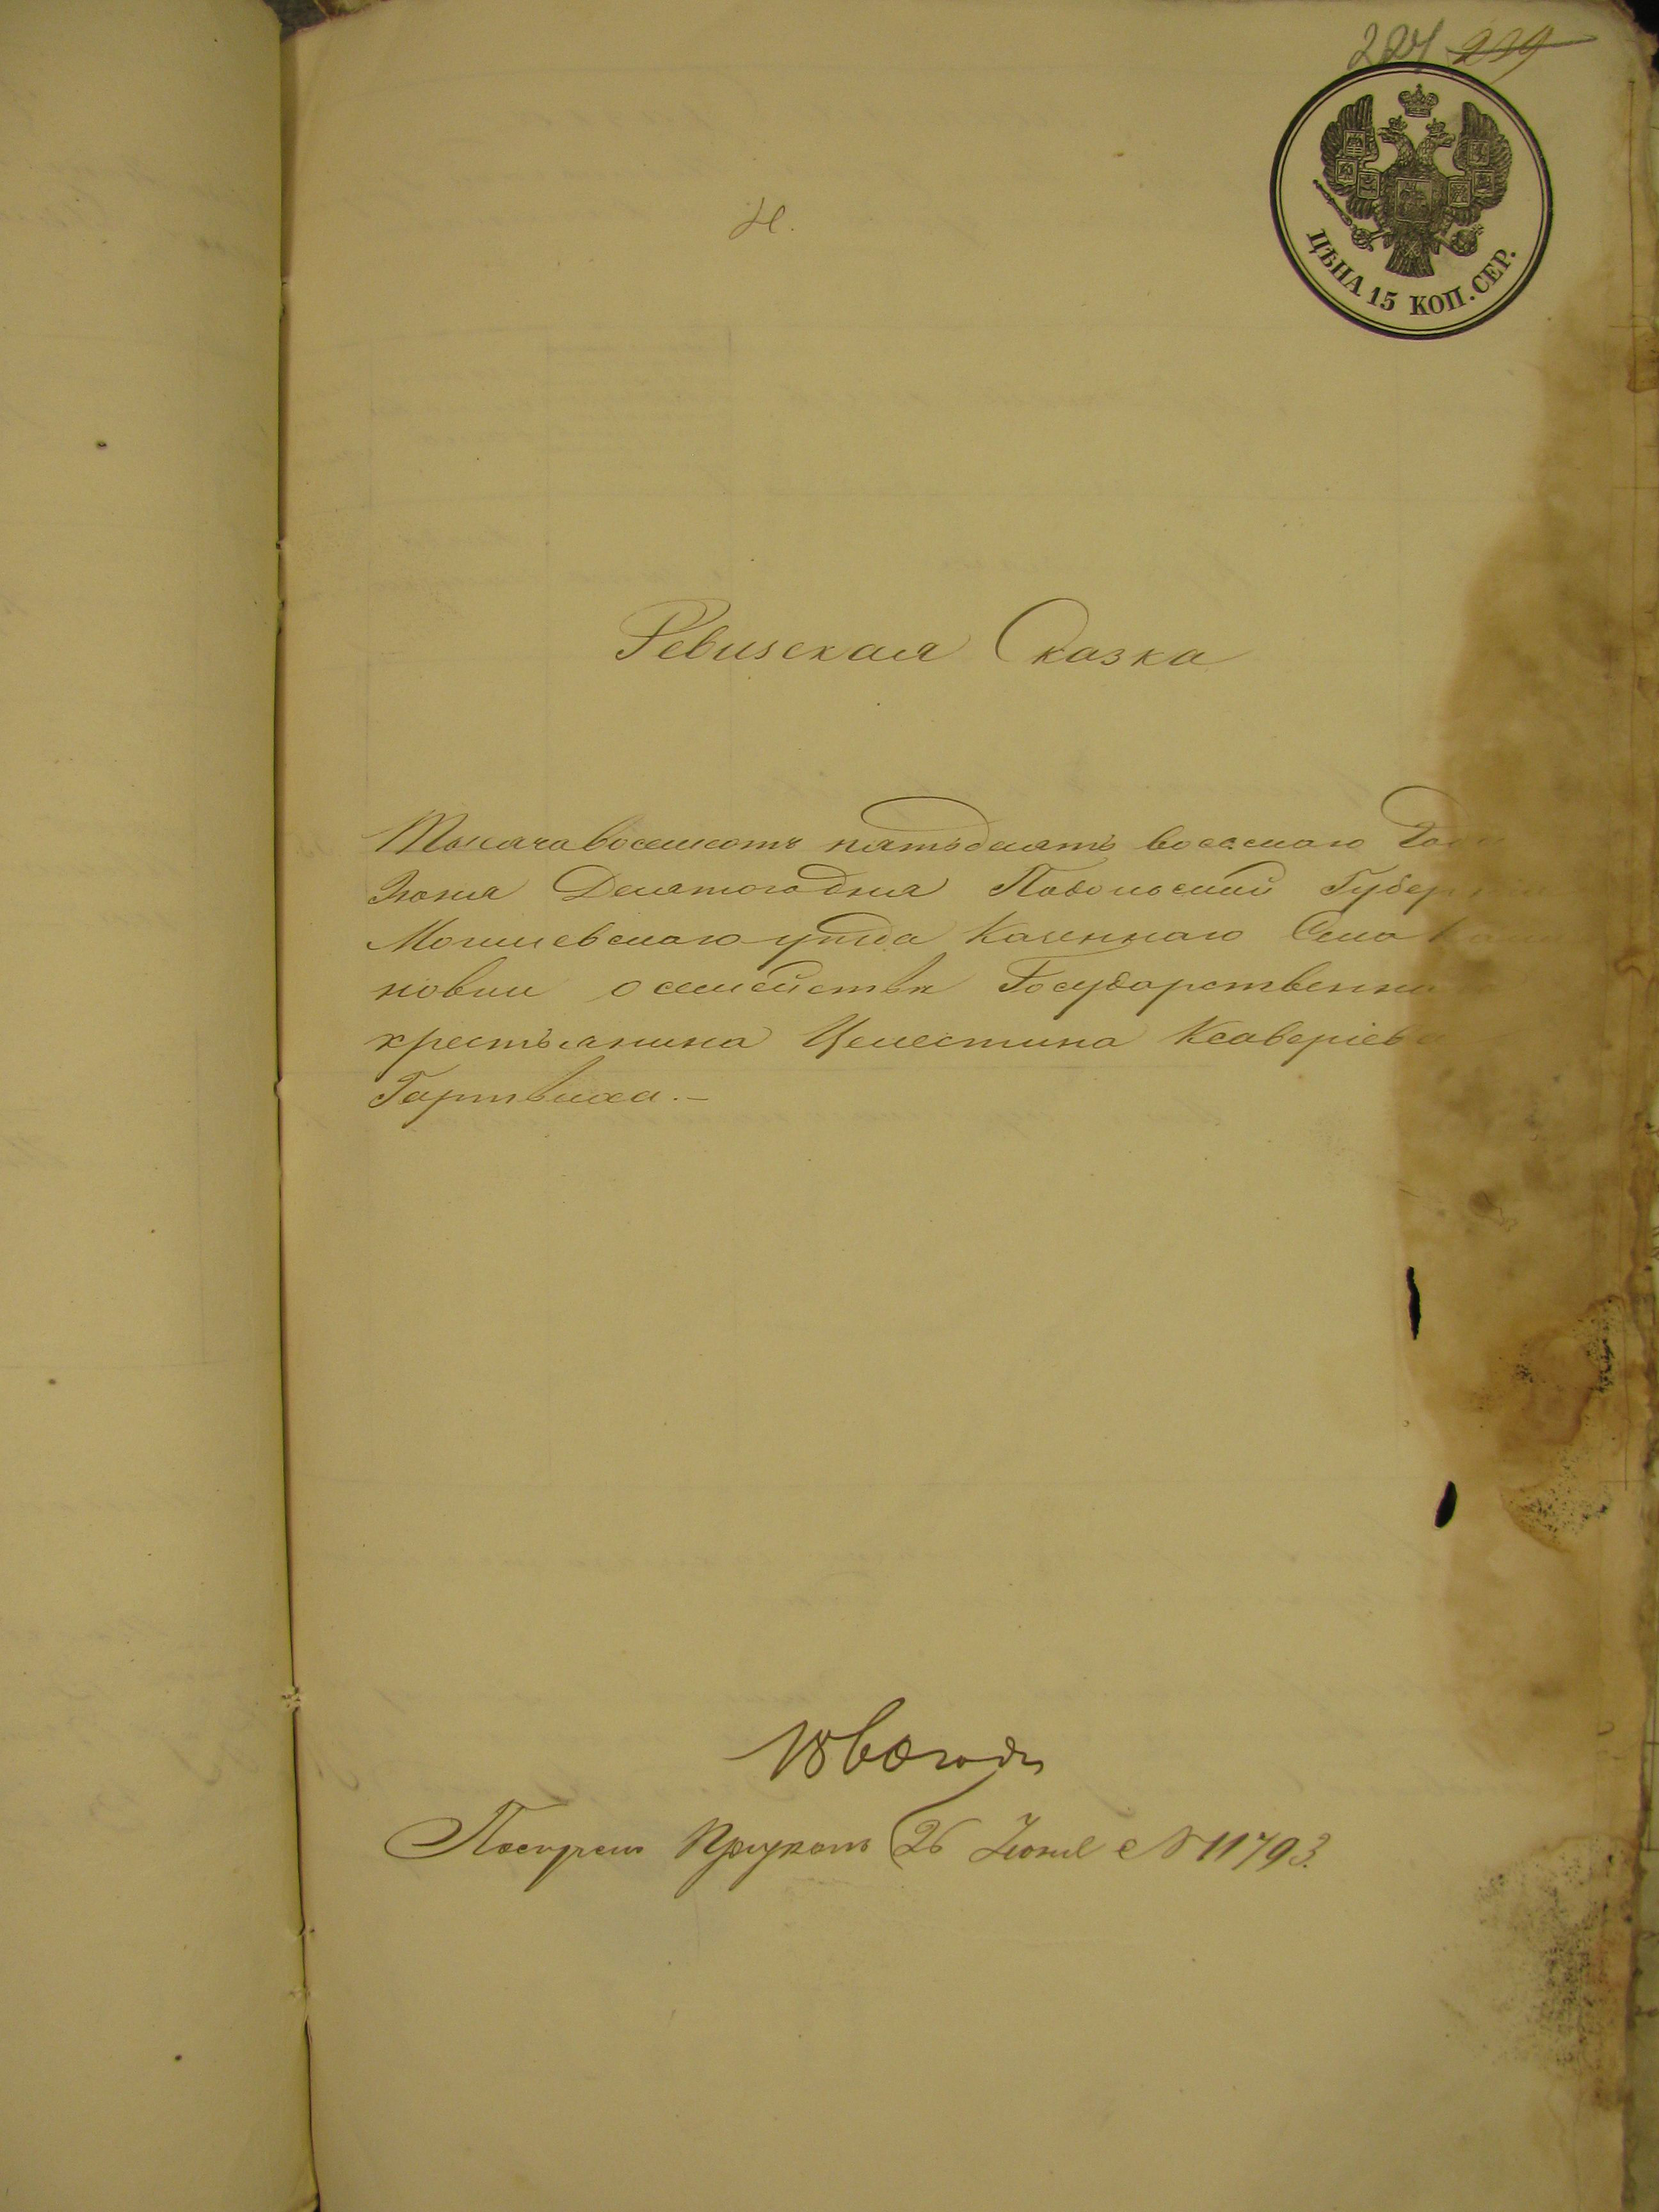 227 239
ЦѢНА 15 КОП. СЕР.
Н.
Ревизская Сказка
Тысяча восемсотъ пятьдесятъ восьмаго Года
Июня Десятого дня Подольской Губер
Могилевскаго уѣзда Казеннаго Села
новки о семействѣ Государственна
крестьянина Целестина Ксаверіева
Гартвиха.-
26 Июня № 11793.